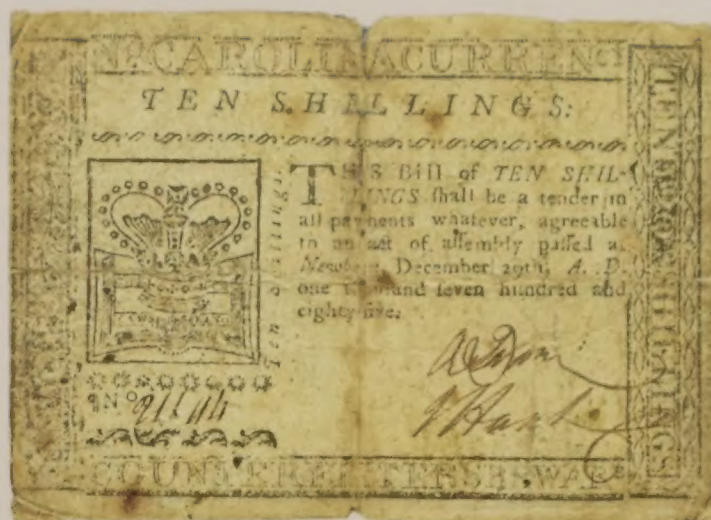 No CAROLINA CURRENCY
TEN SHILLINGS:
THIS Bill of TEN SHIL-
LINGS shall be a tender in
all payments whatever, agreeable
to an act of assembly passed at
Newbern, December 29th, A. D.
one thousand seven hundred and
eighty-five.
Ten Shillings.
No
TEN SHILLINGS
COUNTERFEITERS BEWARE